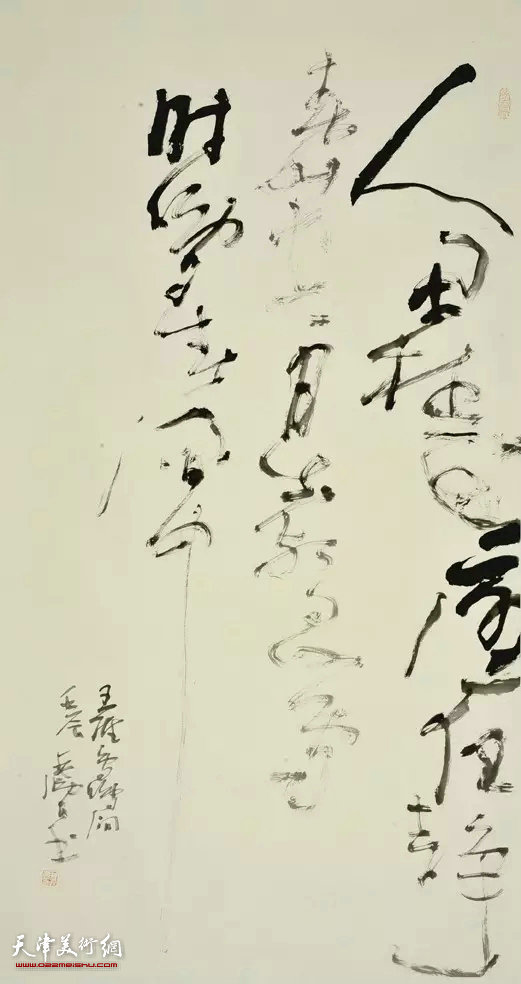 人闲桂花落夜静
春山空月出惊山鸟
时鸣春涧中
王维鸟鸣涧
壬辰
天津美術網
www.022meishu.com